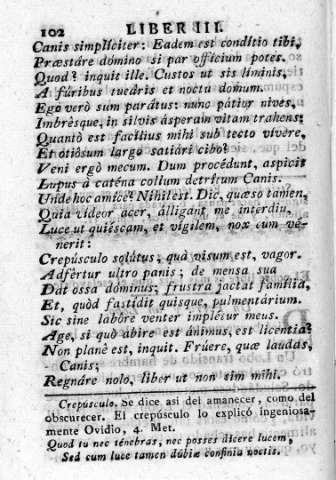 102 LIBER III.
Canis simpliciter: Eadem est conditio tibi,
Præstáre dómino si par officium potes.
Quod? inquit ille. Custos ut sis líminis,
A fúribus tueáris et noctu domum.
Ego verò sum parátus: nunc pátior nives,
Imbrèsque, in silvis ásperam vitam trahens:
Quantò est facilius mihi sub tecto vivere,
Et otiósum largo satiári cibo?
Veni ergò mecum. Dum procédunt, aspicit
Lupus à caténa collum detritum Canis.
Unde hoc amice? Nihil est. Dic, quæso tamen.
Quia videor acer, álligant me interdiu,
Luce ut quiéscam, et vigilem, nox cum ve-
nerit:
Crepúsculo solútus, quà visum est, vagor.
Adfértur ultro panis; de mensa sua
Dat ossa dóminus; frustra jactat família,
Et, quòd fastidit quisque, pulmentárium.
Sic sine labóre venter implétur meus.
Age, si quò abire est ánimus, est licentia?
Non planè est, inquit. Frúere, quæ laudas,
Canis;
Regnáre nolo, liber ut non sim mihi.
Crepúsculo. Se dice asi del amanecer, como del
obscurecer. El crepúsculo lo explicó ingeniosa-
mente Ovidio, 4. Met.
Quod tu nec ténebras, nec posses dícere lucem,
Sed cum luce tamen dúbiæ confinia noctis.